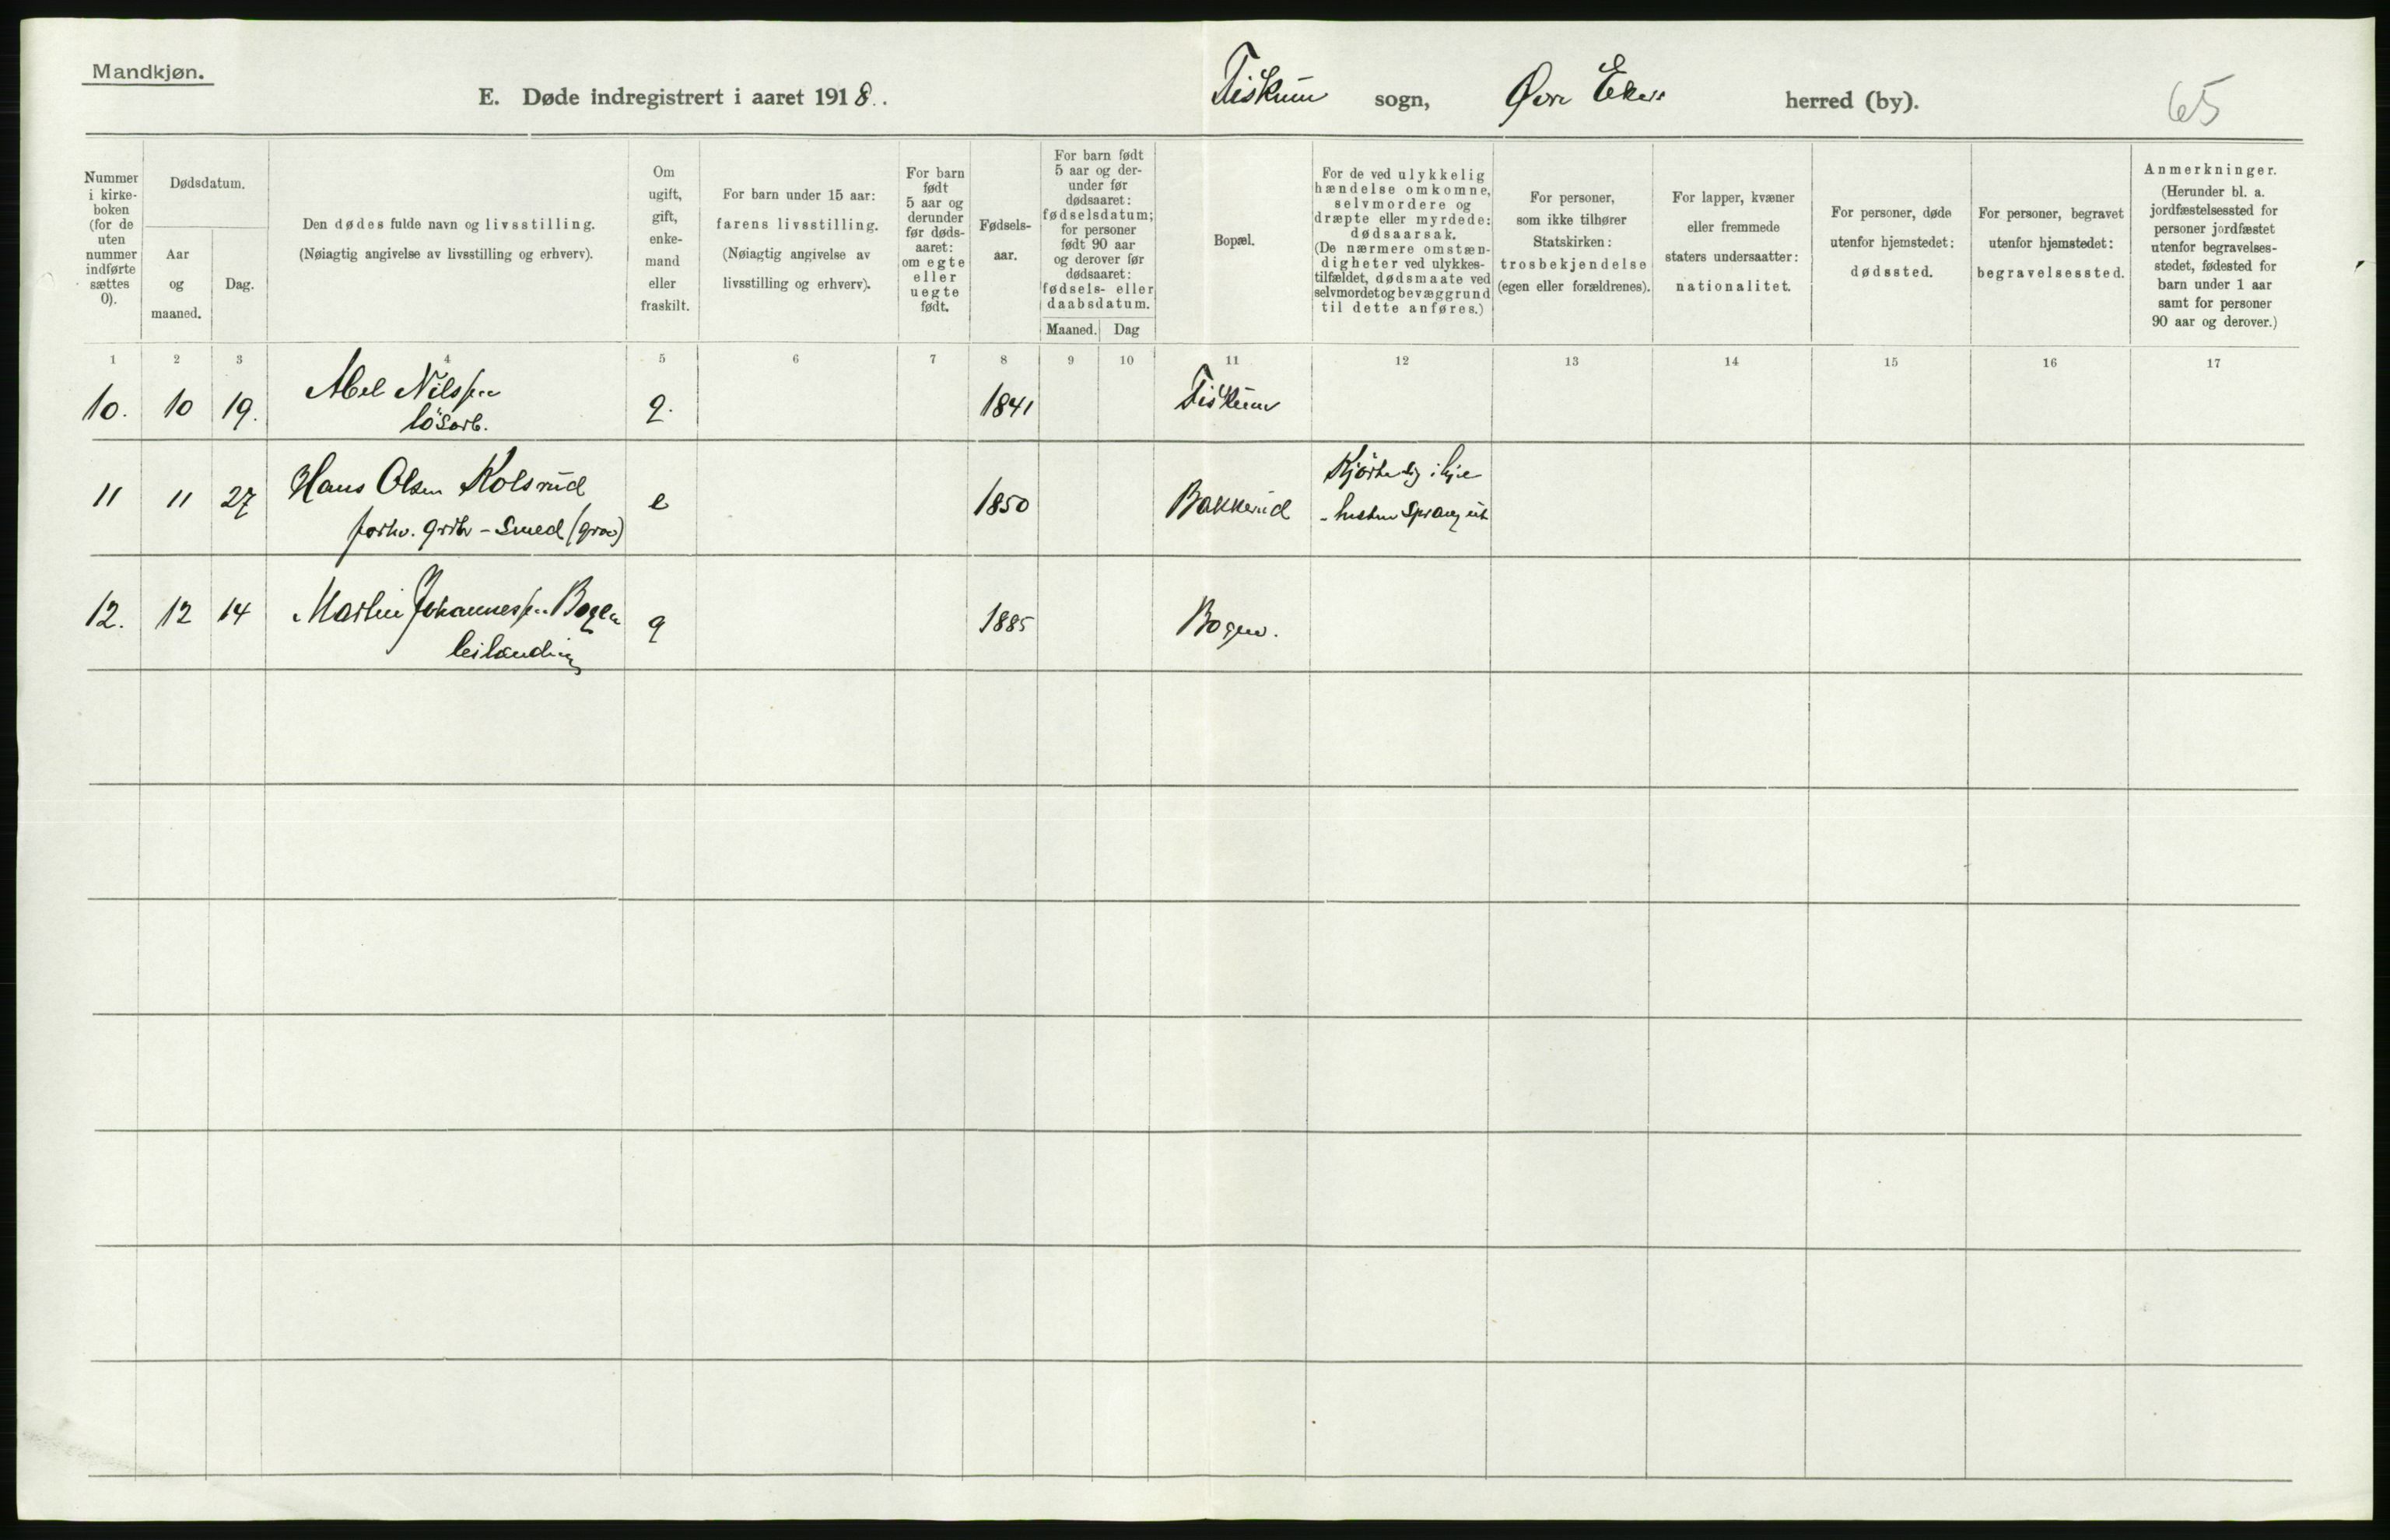 Mandkjøn.
E. Døde indregistrert i aaret 1918.
Fiskum sogn, Øvre Eker herred (by).
65
Nummer i kirke-boken (for de uten nummer indførte sættes 0).
Dødsdatum.
Aar og maaned.
Dag.
Den dødes fulde navn og livsstilling.
(Nøiagtig angivelse av livsstilling og erhverv).
Om ugift, gift, enke-mand eller fraskilt.
For barn under 15 aar: farens livsstilling.
(Nøiagtig angivelse av livsstilling og erhverv).
For barn født 5 aar og derunder før døds-aaret: om egte eller uegte født.
Fødsels-aar.
For barn født 5 aar og der-under før dødsaaret: fødselsdatum; for personer født 90 aar og derover før dødsaaret: fødsels- eller daabsdatum.
Maaned. Dag
Bopæl.
For de ved ulykkelig hændelse omkomne, selvmordere og dræpte eller myrdede: dødsaarsak.
(De nærmere omstæn-digheter ved ulykkes-tilfældet, dødsmaate ved selvmordet og bevæggrund til dette anføres.)
For personer, som ikke tilhører Statskirken: trosbekjendelse (egen eller forældrenes).
For lapper, kvæner eller fremmede staters undersaatter: nationalitet.
For personer, døde utenfor hjemstedet: dødssted.
For personer, begravet utenfor hjemstedet: begravelsessted.
Anmerkninger.
(Herunder bl. a. jordfæstelsessted for personer jordfæstet utenfor begravelses-stedet, fødested for barn under 1 aar samt for personer 90 aar og derover.)
1 2 3 4 5 6 7 8 9 10 11 12 13 14 15 16 17
10. 10 19. Abel Nilssen g. 1841 Fiskum
løsarb.
11 11 27 Hans Olsen Kolsrud e 1850 Bakkerud Kjørte sig ihjel
forhv. - Smed (grov) - hesten sprang ut
12. 12 14 Martin Johannessen Bogen g 1885 Bogen.
leilænding